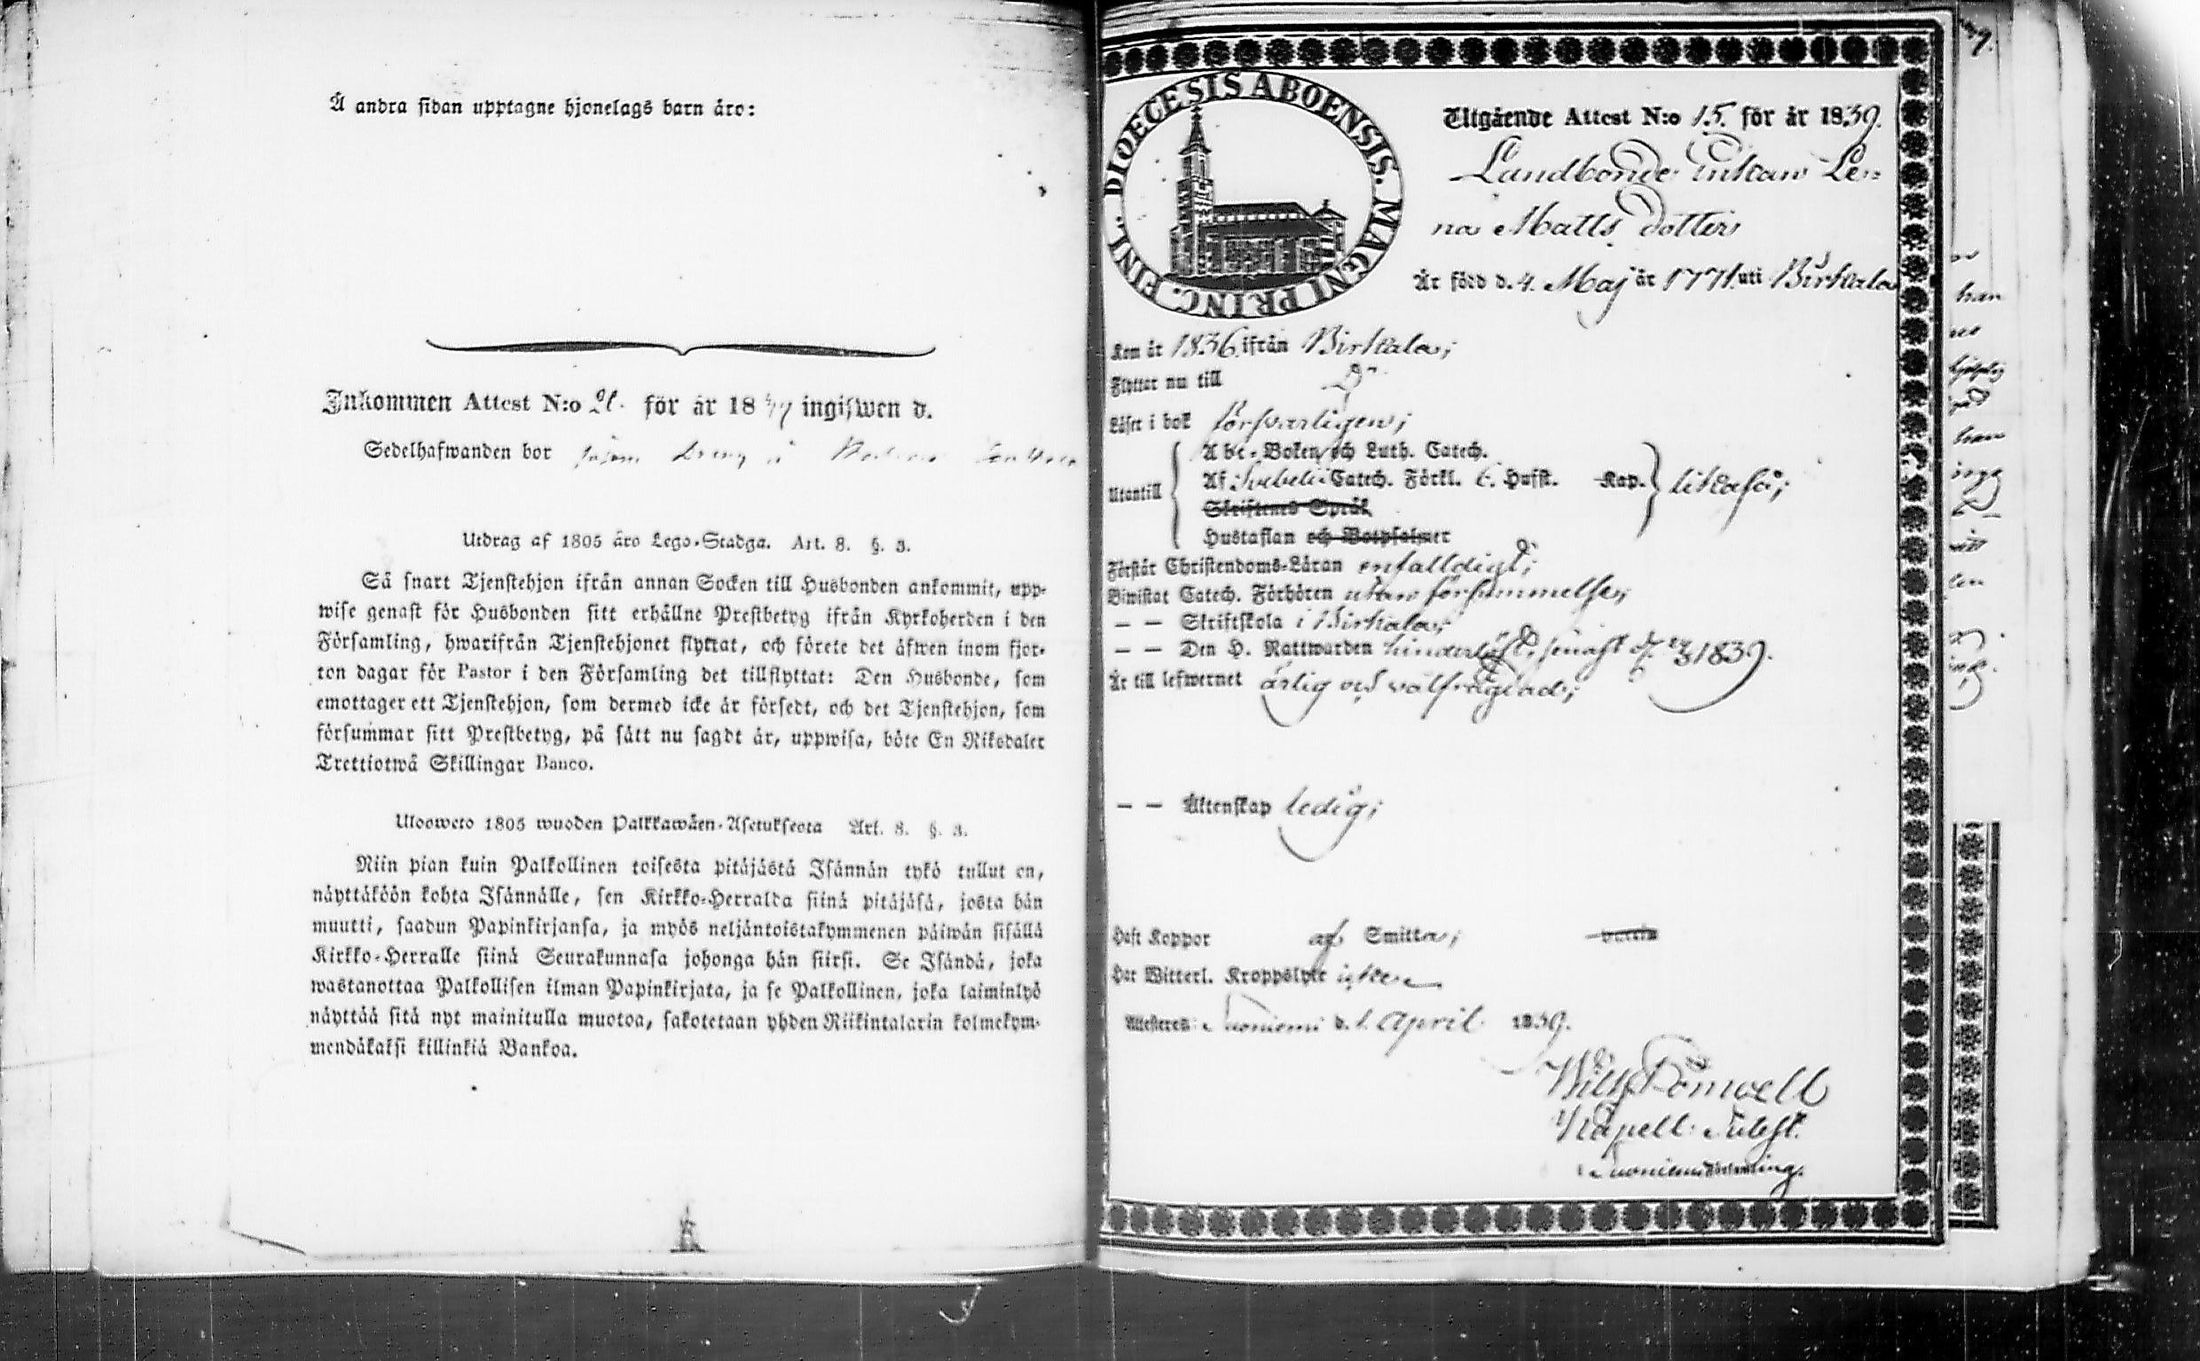 Å andra sidan upptagne hjonelags barn äro:
Inkommen Attest N:o för år 18 ingifwen d.
Sedelhafwanden bor
Utdrag af 1805 års Lego-Stadga. Art. 8. §. 3.
Så snart Tjenstehjon ifrån annan Socken till Husbonden ankommit, upp-
wise genast för Husbonden sitt erhållne Prestbetyg ifrån Kyrkoherden i den
Församling, hwarifrån Tjenstehjonet flyttat, och förete det äfwen inom fjor-
ton dagar för Pastor i den Församling det tillflyttat: Den Husbonde, som
emottager ett Tjenstehjon, som dermed icke är försedt, och det Tjenstehjon, som
försummar sitt Prestbetyg, på sätt nu sagdt är, uppwisa, böte En Riksdaler
Trettiotwå Skillingar Banco.
Ulosweto 1805 wuoden Palkkawäen-Asetuksesta Art. 8. §. 3.
Niin pian kuin Palkollinen toisesta pitäjästä Isännän tykö tullut on,
näyttäköön kohta Isännälle, sen Kirkko-Herralda siinä pitäjäsä, josta hän
muutti, saadun Papinkirjansa, ja myös neljäntoistakymmenen päiwän sisällä
Kirkko-Herralle siinä Seurakunnasa johonga hän siirsi. Se Isändä, joka
wastanottaa Palkollisen ilman Papinkirjata, ja se Palkollinen, joka laiminlyö
näyttää sitä nyt mainitulla muotoa, sakotetaan yhden Riikintalarin kolmekym-
mendäkaksi killinkiä Bankoa.
DIOECESIS ABOENSIS. MAGNI PRINC. FINL.
Utgående Attest N:o 15. för år 1839.
Landbonde Enkan Le-
na Matts dotter
Är född d. 4. Maj år 1771. uti Birkala
Kom år 1836. ifrån Birkala;
Flyttar nu till Do
Läser i bok försvarligen;
Utantill
A b c-Boken och Luth. Catech.
Af Svebelii Catech. Förkl. 6. Hufst. Kap. likaså;
Skriftenes Språk
Hustaflan och Botpsalmer
Förstår Christendoms-Läran enfalldigt;
Biwistat Catech. Förhören utan försummelse;
— — Skriftskola i Birkala;
— — Den H. Nattwarden hinderlöst, senast d. 1839.
Är till lefwernet ärlig och välfrägdad;
— — Äktenskap ledig;
Haft Koppor af Smitta; vaccin
Har Witterl. Kroppslyte icke
Attesteras Suoniemi d. 1. April 1839.
Wilh. Fonwell
Kapell. Subst.
i Suoniemi Församling.